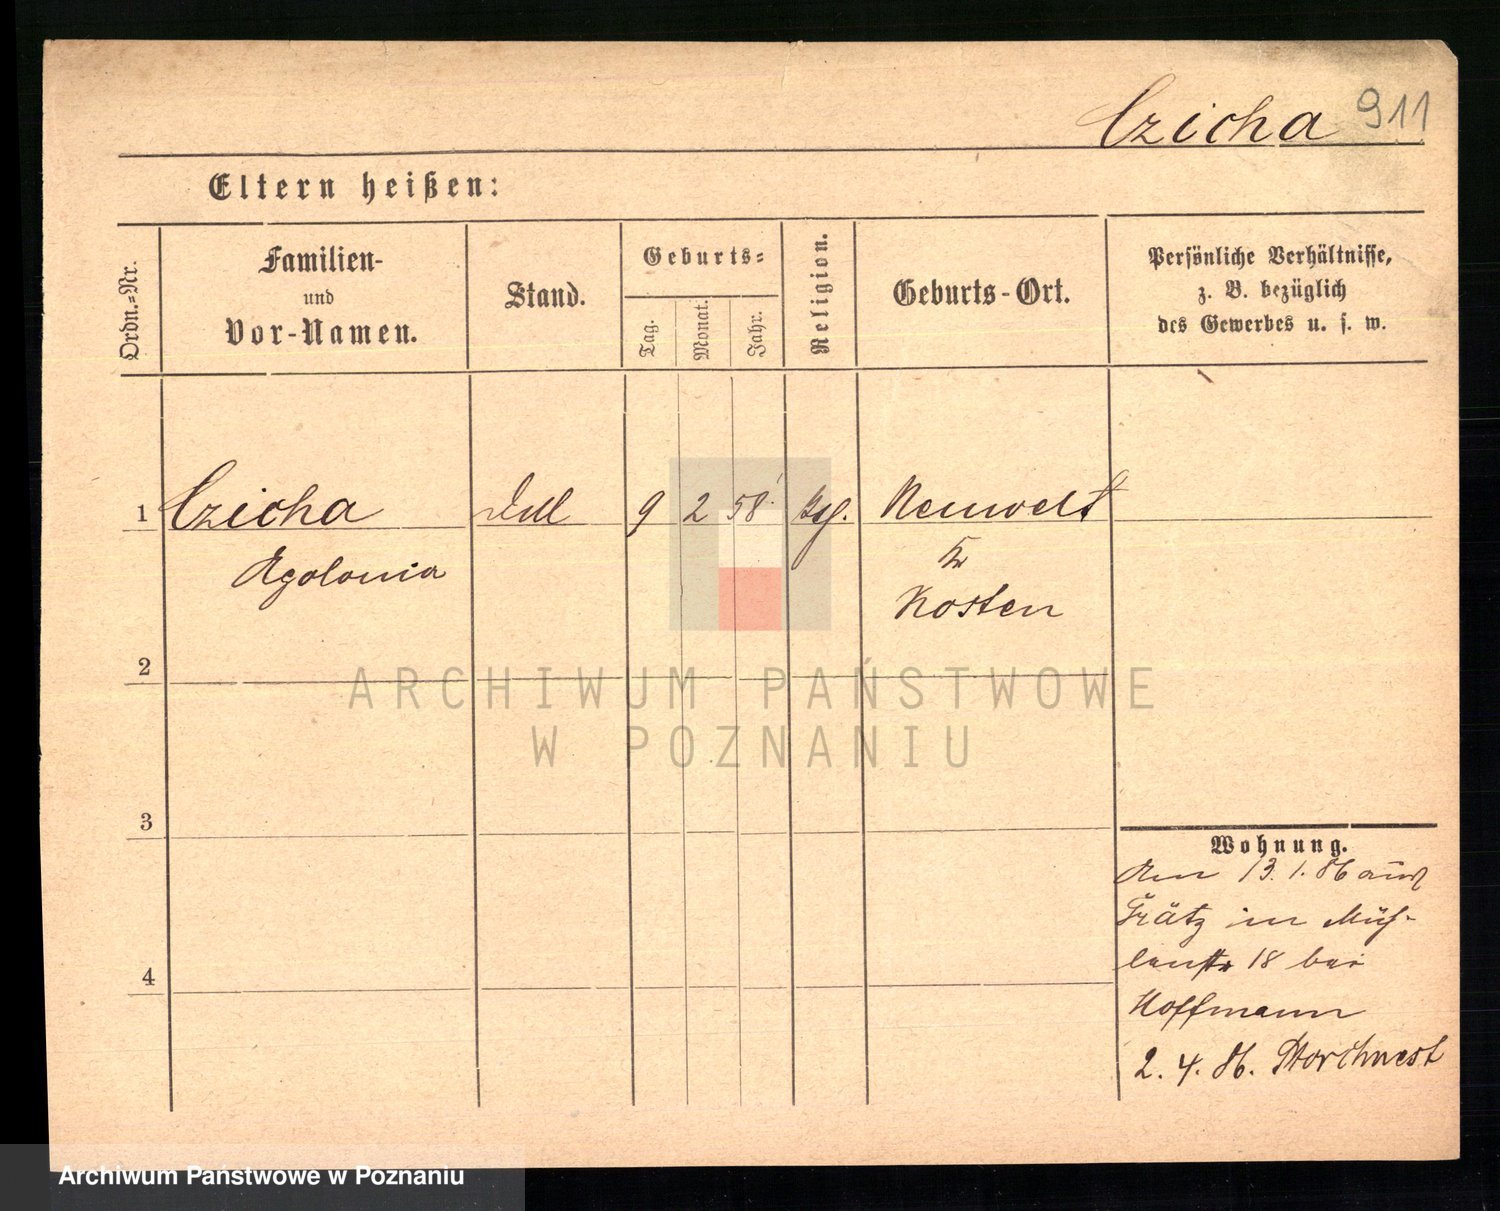 Czicha 911
Eltern heißen:
Ordn.=Nr.
Familien-
und
Vor-Namen.
Stand.
Geburts=
Tag.
Monat.
Jahr.
Religion.
Geburts-Ort.
Persönliche Verhältnisse,
z. B. bezüglich
des Gewerbes u. s. w.
1 Czicha 9 2 58 Neuwelt
Agolonia
Kosten
2
3
4
Wohnung.
Am 13.1.86 aus
Grätz in Müh-
lenstr 18 bei
Hoffmann
2.4.86. Storchnest
ARCHIWUM PAŃSTWOWE
W POZNANIU
Archiwum Państwowe w Poznaniu